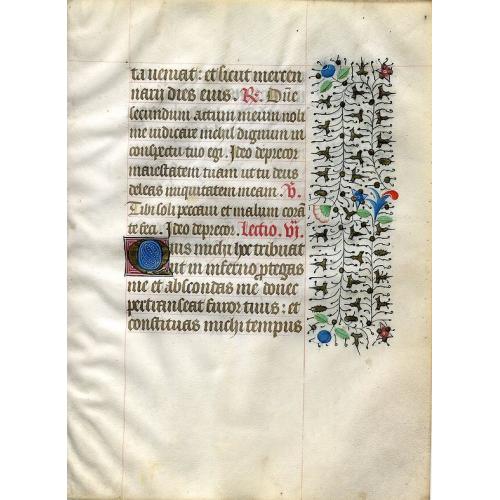 ta veniat: et sicut mercen
narij dies eius. R. Dñe
secundum actum meum noli
me iudicare nichil dignum in
conspectu tuo egi. Ideo deprecor
maiestatem tuam ut tu deus
deleas iniquitatem meam. V.
Tibi soli peccaui et malum corã
te feci. Ideo deprecor. Lectio. vj.
Quis michi hoc tribuat
ut in inferno ꝓtegas
me et abscondas me donec
pertranseat furor tuus: et
constituas michi tempus